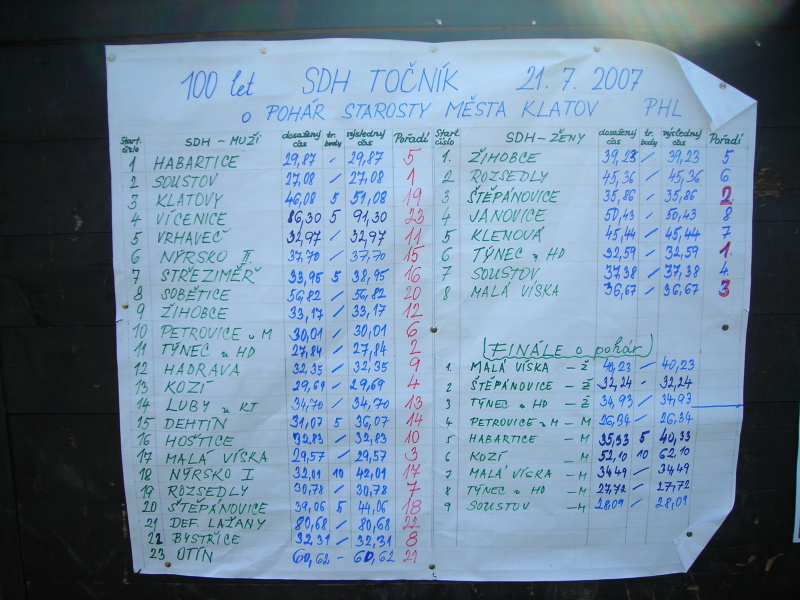 100 let SDH TOČNÍK 21. 7. 2007
O POHÁR STAROSTY MĚSTA KLATOV PHL
Start. číslo SDH – MUŽI dosažený čas tr. body výsledný čas Pořadí
1 HABARTICE 29,87 / 29,87 5
2 SOUSTOV 27,08 / 27,08 1
3 KLATOVY 46,08 5 51,08 19
4 VÍCENICE 86,30 5 91,30 23
5 VRHAVEČ 32,97 / 32,97 11
6 NÝRSKO II. 37,70 / 37,70 15
7 STŘEZIMĚŘ 33,95 5 38,95 16
8 SOBĚTICE 56,82 / 56,82 20
9 ŽIHOBCE 33,17 / 33,17 12
10 PETROVICE u M 30,01 / 30,01 6
11 TÝNEC u HD 27,84 / 27,84 2
12 HADRAVA 32,35 / 32,35 9
13 KOZÍ 29,69 / 29,69 4
14 LUBY u KT 34,70 / 34,70 13
15 DEHTÍN 31,07 5 36,07 14
16 HOŠTICE 32,83 / 32,83 10
17 MALÁ VÍSKA 29,57 / 29,57 3
18 NÝRSKO I 32,01 10 42,01 17
19 ROZSEDLY 30,78 / 30,78 7
20 ŠTĚPÁNOVICE 39,06 5 44,06 18
21 DEF. LAŽANY 80,68 / 80,68 22
22 BYSTŘICE 32,31 / 32,31 8
23 OTÍN 60,62 – 60,62 21
Start. číslo SDH – ŽENY dosažený čas tr. body výsledný čas Pořadí
1. ŽIHOBCE 39,23 / 39,23 5
2 ROZSEDLY 45,36 / 45,36 6
3 ŠTĚPÁNOVICE 35,86 / 35,86 2.
4 JANOVICE 50,43 / 50,43 8
5 KLENOVÁ 45,44 / 45,44 7
6 TÝNEC u HD 32,59 / 32,59 1.
7 SOUSTOV 37,38 / 37,38 4.
8 MALÁ VÍSKA 36,67 / 36,67 3
(FINÁLE o pohár)
1 MALÁ VÍSKA – Ž 40,23 / 40,23
2 ŠTĚPÁNOVICE – Ž 32,24 – 32,24
3 TÝNEC u HD – Ž 34,93 / 34,93
4 PETROVICE u M – M 26,34 / 26,34
5 HABARTICE – M 35,33 5 40,33
6 KOZÍ – M 52,10 10 62,10
7 MALÁ VÍSKA – M 34,49 / 34,49
8 TÝNEC u HD – M 27,72 / 27,72
9 SOUSTOV – M 28,09 / 28,09